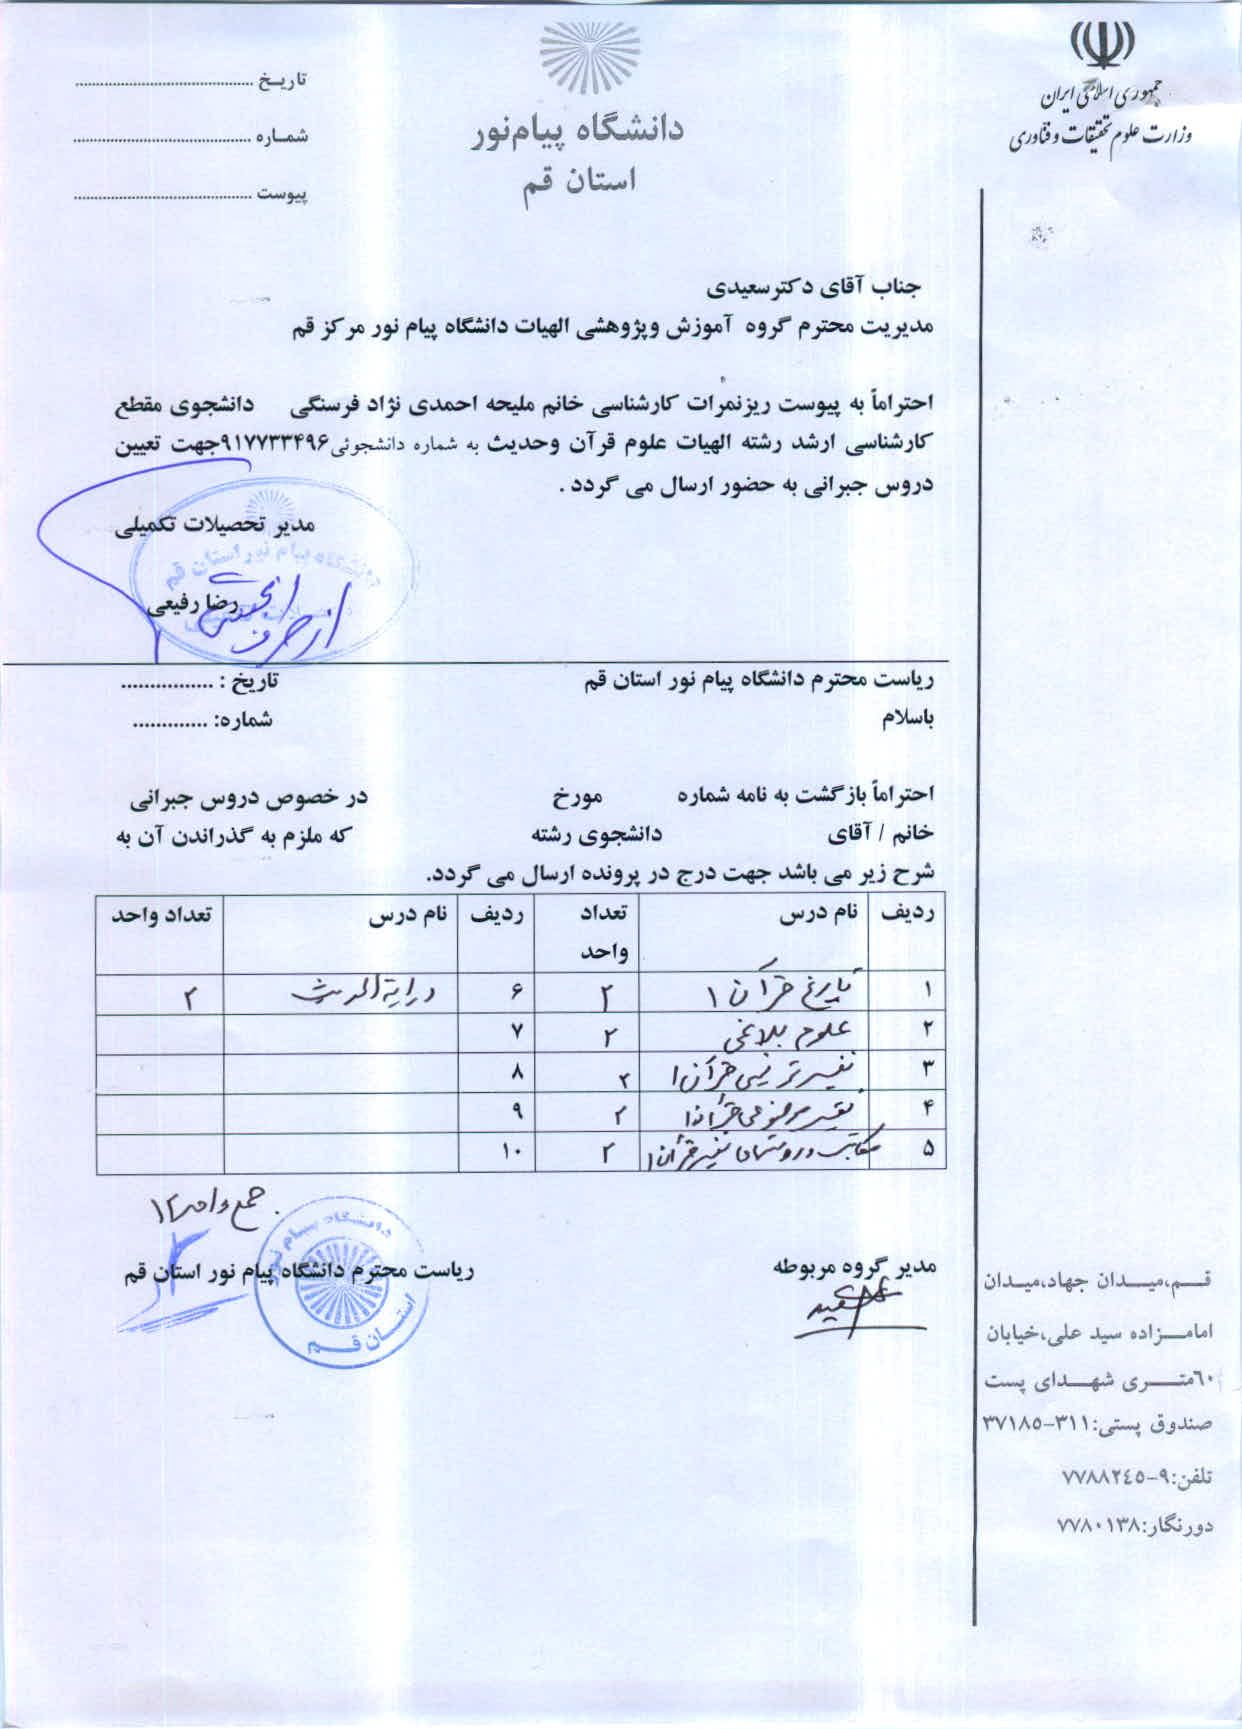 جمهوری اسلامی ایران
وزارت علوم تحقیقات و فناوری
دانشگاه پیام‌نور
استان قم
تاریـخ ......................................
شمـاره ......................................
پیوست ......................................
جناب آقای دکترسعیدی
مدیریت محترم گروه آموزش وپژوهشی الهیات دانشگاه پیام نور مرکز قم
احتراماً به پیوست ریزنمرات کارشناسی خانم ملیحه احمدی نژاد فرسنگی دانشجوی مقطع
کارشناسی ارشد رشته الهیات علوم قرآن وحدیث به شماره دانشجوئی۹۱۷۷۳۳۴۹۶جهت تعیین
دروس جبرانی به حضور ارسال می گردد .
مدیر تحصیلات تکمیلی
دانشگاه پیام نور استان قم
رضا رفیعی
از طرف
ریاست محترم دانشگاه پیام نور استان قم
تاریخ : ................
باسلام
شماره: .............
احتراماً بازگشت به نامه شماره مورخ در خصوص دروس جبرانی
خانم / آقای دانشجوی رشته که ملزم به گذراندن آن به
شرح زیر می باشد جهت درج در پرونده ارسال می گردد.
ردیف نام درس تعداد واحد ردیف نام درس تعداد واحد
۱ تاریخ قرآن ۱ ۲ ۶ درایة الحدیث ۲
۲ علوم بلاغی ۲ ۷
۳ تفسیر ترتیبی قرآن ۱ ۲ ۸
۴ تفسیر موضوعی قرآن ۱ ۲ ۹
۵ مکاتب و روشهای تفسیر قرآن ۱ ۲ ۱۰
جمع واحد ۱۲
مدیر گروه مربوطه
ریاست محترم دانشگاه پیام نور استان قم
دانشگاه پیام نور
استان قم
قـــم،میــدان جهاد،میـدان
امامـــزاده سید علی،خیابان
٦٠متـــری شهــدای پست
صندوق پستی:۳۱۱-۳۷۱۸۵
تلفن:۹-۷۷۸۸۲٤۵
دورنگار:۷۷۸۰۱۳۸